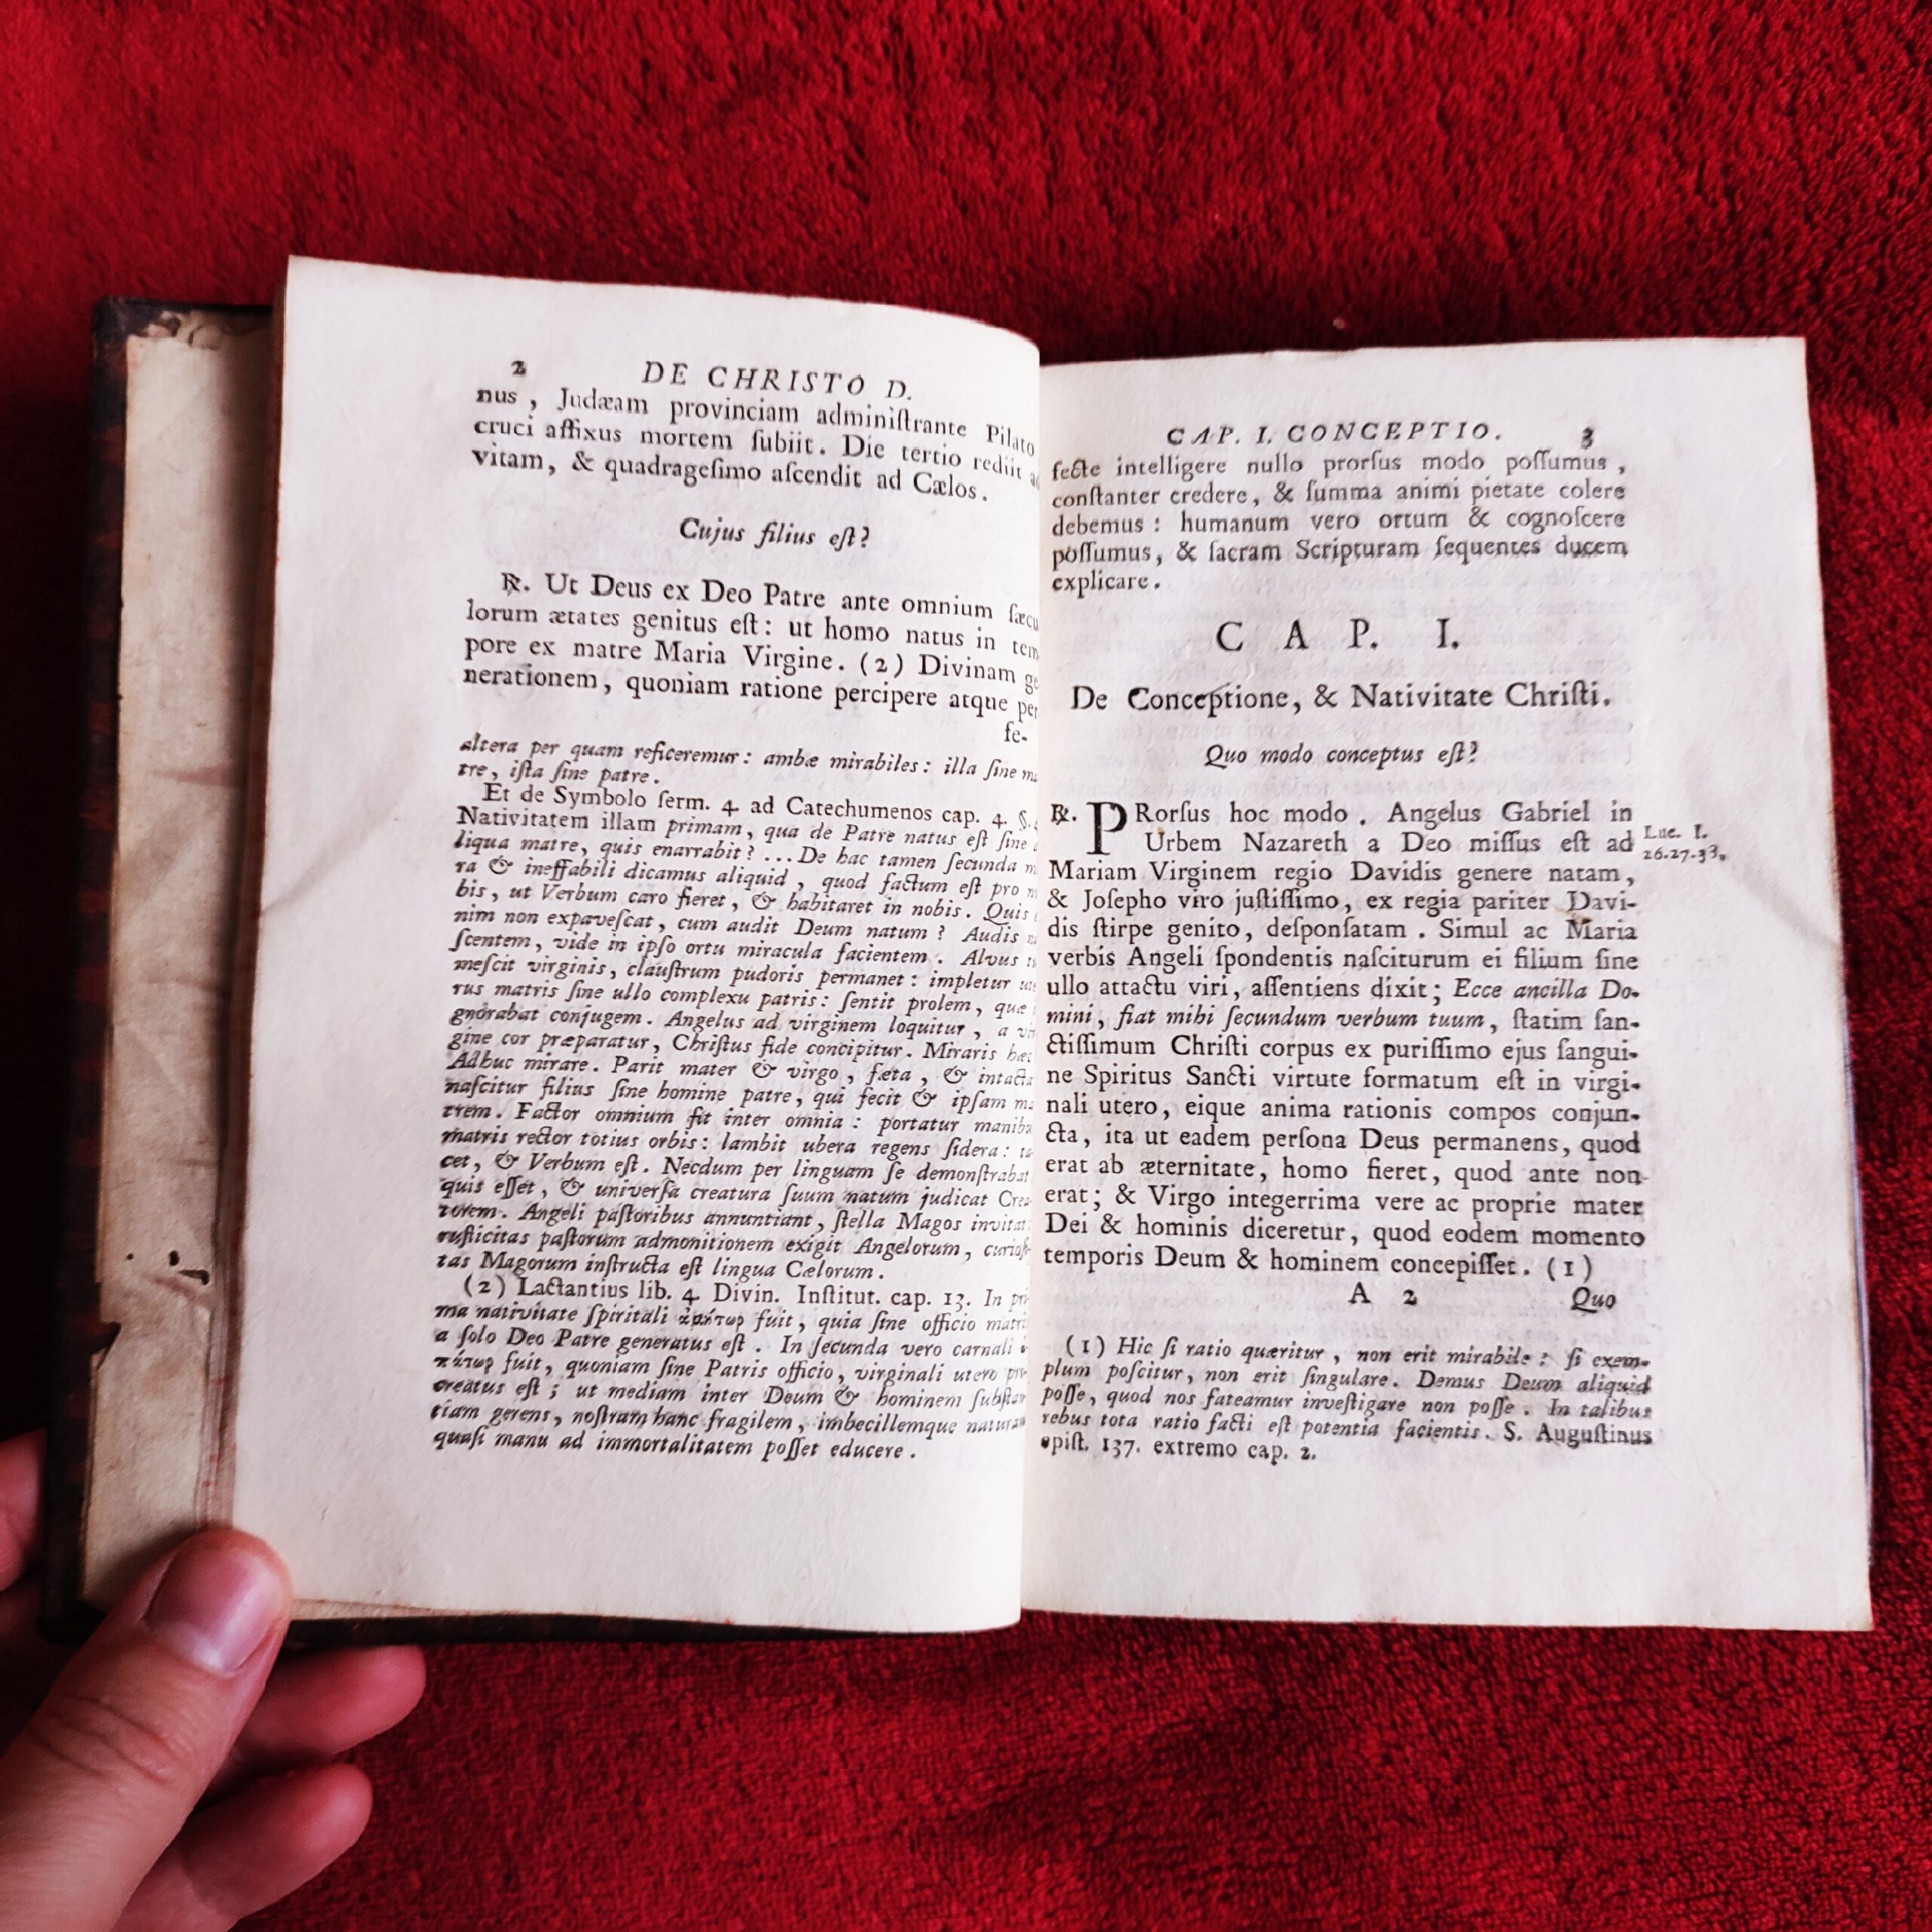 2 DE CHRISTO D.
nus, Judæam provinciam adminiſtrante Pilato
cruci affixus mortem ſubiit. Die tertio rediit
vitam, & quadrageſimo aſcendit ad Cælos.
Cujus filius eſt?
℟. Ut Deus ex Deo Patre ante omnium ſæcu
lorum ætates genitus eſt: ut homo natus in tem
pore ex matre Maria Virgine. (2) Divinam ge
nerationem, quoniam ratione percipere atque per
fe-
altera per quam reficeremur: ambæ mirabiles: illa ſine
tre, iſta ſine patre.
Et de Symbolo ſerm. 4 ad Catechumenos cap. 4. §.
Nativitatem illam primam, qua de Patre natus eſt ſine
liqua matre, quis enarrabit? ... De hac tamen ſecunda
ra & ineffabili dicamus aliquid, quod factum eſt pro
bis, ut Verbum caro fieret, & habitaret in nobis. Quis
nim non expaveſcat, cum audit Deum natum? Audis
ſcentem, vide in ipſo ortu miracula facientem. Alvus
meſcit virginis, clauſtrum pudoris permanet: impletur
rus matris ſine ullo complexu patris: ſentit prolem, quæ
gnorabat conjugem. Angelus ad virginem loquitur, a vir
gine cor præparatur, Chriſtus fide concipitur. Miraris hæc
Adhuc mirare. Parit mater & virgo, fæta, & intacta
naſcitur filius ſine homine patre, qui fecit & ipſam ma
trem. Factor omnium fit inter omnia: portatur maniba
matris rector totius orbis: lambit ubera regens ſidera: ta
cet, & Verbum eſt. Necdum per linguam ſe demonſtrabat
quis eſſet, & univerſa creatura ſuum natum judicat Crea
torem. Angeli paſtoribus annuntiant, ſtella Magos invitat
ruſticitas paſtorum admonitionem exigit Angelorum, curioſi
tas Magorum inſtructa eſt lingua Cælorum.
(2) Lactantius lib. 4 Divin. Inſtitut. cap. 13. In pri
ma nativitate ſpiritali ἀμήτωρ fuit, quia ſine officio matris
a ſolo Deo Patre generatus eſt. In ſecunda vero carnali
πάτωρ fuit, quoniam ſine Patris officio, virginali utero pro
creatus eſt; ut mediam inter Deum & hominem ſubſtan
tiam gerens, noſtram hanc fragilem, imbecillemque naturam
quaſi manu ad immortalitatem poſſet educere.
CAP. I. CONCEPTIO. 3
fecte intelligere nullo prorſus modo poſſumus,
conſtanter credere, & ſumma animi pietate colere
debemus: humanum vero ortum & cognoſcere
poſſumus, & ſacram Scripturam ſequentes ducem
explicare.
CAP. I.
De Conceptione, & Nativitate Chriſti.
Quo modo conceptus eſt?
℟. PRorſus hoc modo. Angelus Gabriel in
Urbem Nazareth a Deo miſſus eſt ad
Luc. I.
26.27.38.
Mariam Virginem regio Davidis genere natam,
& Joſepho viro juſtiſſimo, ex regia pariter Davi-
dis ſtirpe genito, deſponſatam. Simul ac Maria
verbis Angeli ſpondentis naſciturum ei filium ſine
ullo attactu viri, aſſentiens dixit; Ecce ancilla Do-
mini, fiat mihi ſecundum verbum tuum, ſtatim ſan-
ctiſſimum Chriſti corpus ex puriſſimo ejus ſangui-
ne Spiritus Sancti virtute formatum eſt in virgi-
nali utero, eique anima rationis compos conjun-
cta, ita ut eadem perſona Deus permanens, quod
erat ab æternitate, homo fieret, quod ante non
erat; & Virgo integerrima vere ac proprie mater
Dei & hominis diceretur, quod eodem momento
temporis Deum & hominem concepiſſet. (1)
A 2 Quo
(1) Hic ſi ratio quæritur, non erit mirabile: ſi exem-
plum poſcitur, non erit ſingulare. Demus Deum aliquid
poſſe, quod nos fateamur inveſtigare non poſſe. In talibus
rebus tota ratio facti eſt potentia facientis. S. Auguſtinus
epiſt. 137. extremo cap. 2.